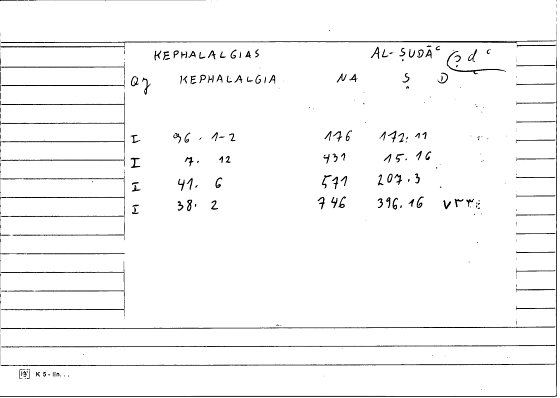 KEPHALALGIAS AL-ṢUDĀʿ ṣdʿ
Qg KEPHALALGIA NA Ṣ D ʿ
I 96. 1-2 176 172.11
I 7. 12 431 15.16
I 41. 6 571 207.3
I 38. 2 746 396.16 ٧٣٣
K 5 - lin...